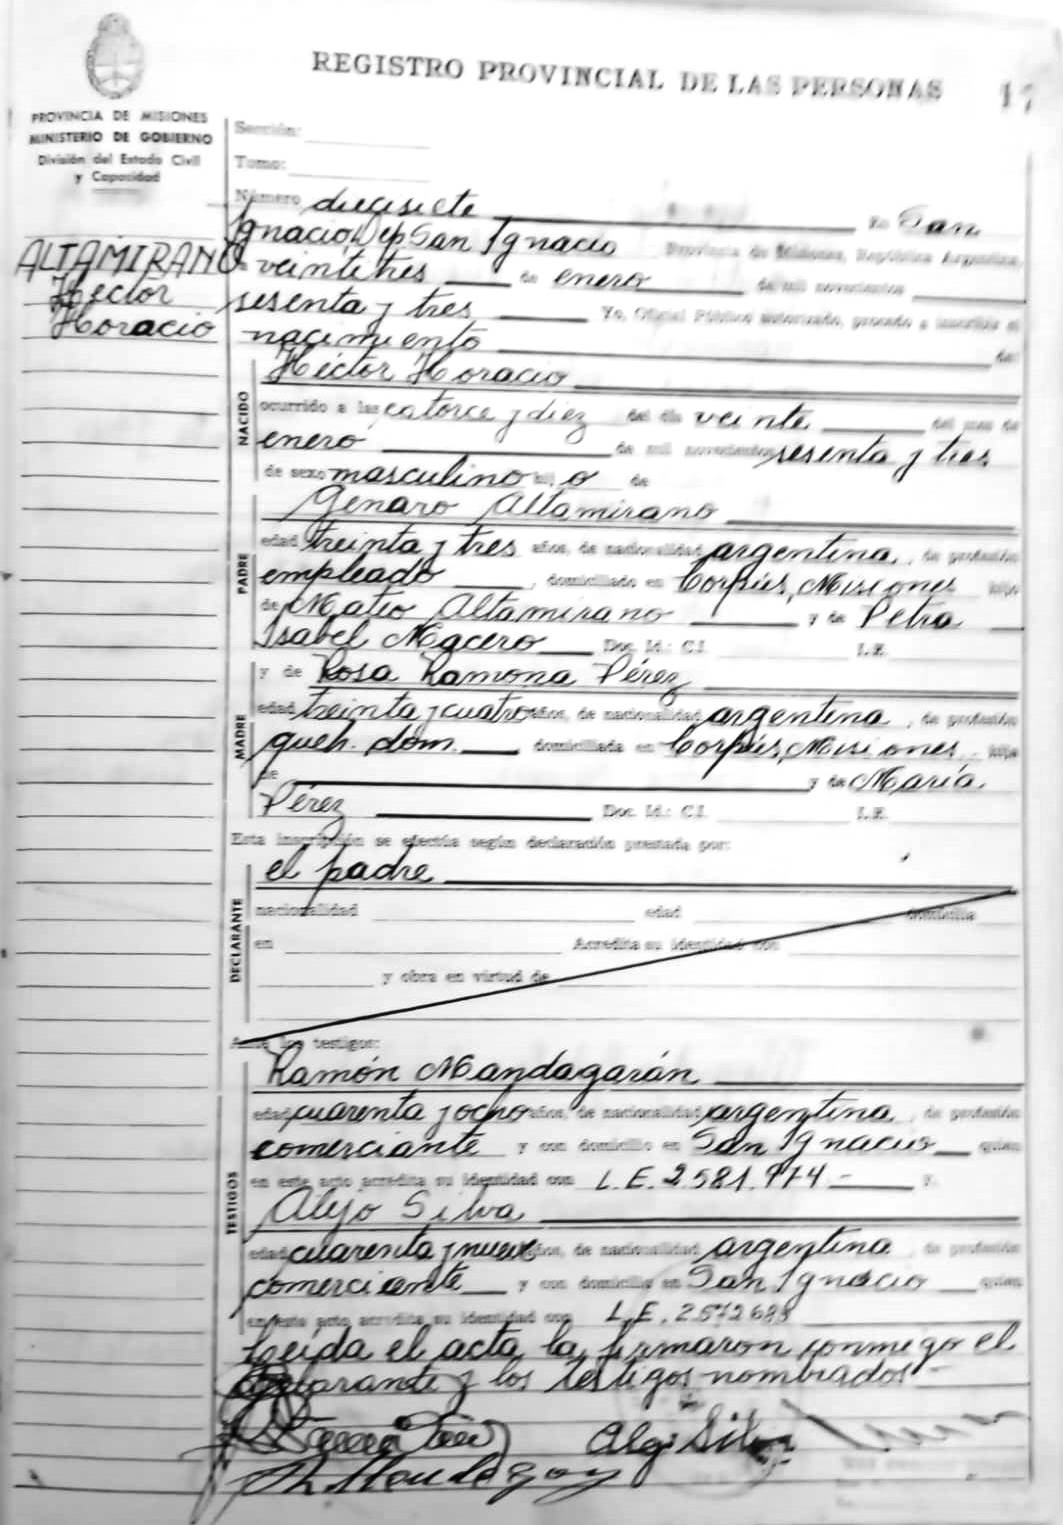 REGISTRO PROVINCIAL DE LAS PERSONAS 17
PROVINCIA DE MISIONES
MINISTERIO DE GOBIERNO
División del Estado Civil
y Capacidad
Sección:
Tomo:
Número diecisiete En San
Ignacio, Dep San Ignacio Provincia de Misiones, República Argentina,
ALTAMIRANO
Hector
Horacio
a veintitres de enero de mil novecientos
sesenta y tres Yo, Oficial Público autorizado, procedo a inscribir el
nacimiento de:
NACIDO
Héctor Horacio
ocurrido a las catorce y diez del día veinte del mes de
enero de mil novecientos sesenta y tres
de sexo masculino hij o de
PADRE
Genaro Altamirano
edad treinta y tres años, de nacionalidad argentina, de profesión
empleado, domiciliado en Corpus, Misiones hijo
de Mateo Altamirano y de Petra
Isabel Macero Doc. Id.: C.I. L.E.
MADRE
y de Rosa Ramona Pérez
edad treinta y cuatro años, de nacionalidad argentina, de profesión
queh. dom. domiciliada en Corpus, Misiones, hija
de y de María
Pérez Doc. Id.: C.I. L.E.
Esta inscripción se efectúa según declaración prestada por:
DECLARANTE
el padre
nacionalidad edad domicilia
en Acredita su identidad con
y obra en virtud de
Ante los testigos:
TESTIGOS
Ramón Mandagarán
edad cuarenta y ocho años, de nacionalidad argentina, de profesión
comerciante y con domicilio en San Ignacio quien
en este acto acredita su identidad con L.E. 2.581.974.- y
Alejo Silva
edad cuarenta y nueve años, de nacionalidad argentina, de profesión
comerciante y con domicilio en San Ignacio quien
en este acto acredita su identidad con L.E. 2.572.689
Leída el acta la firmaron conmigo el
declarante y los testigos nombrados.-
Alejo Silva